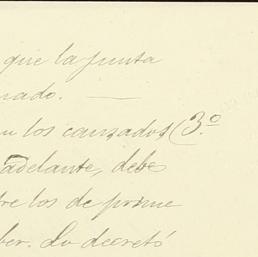 que la junta
nado. —
los causados (3º
adelante, debe
tre los de prime
ber. Lo decretó